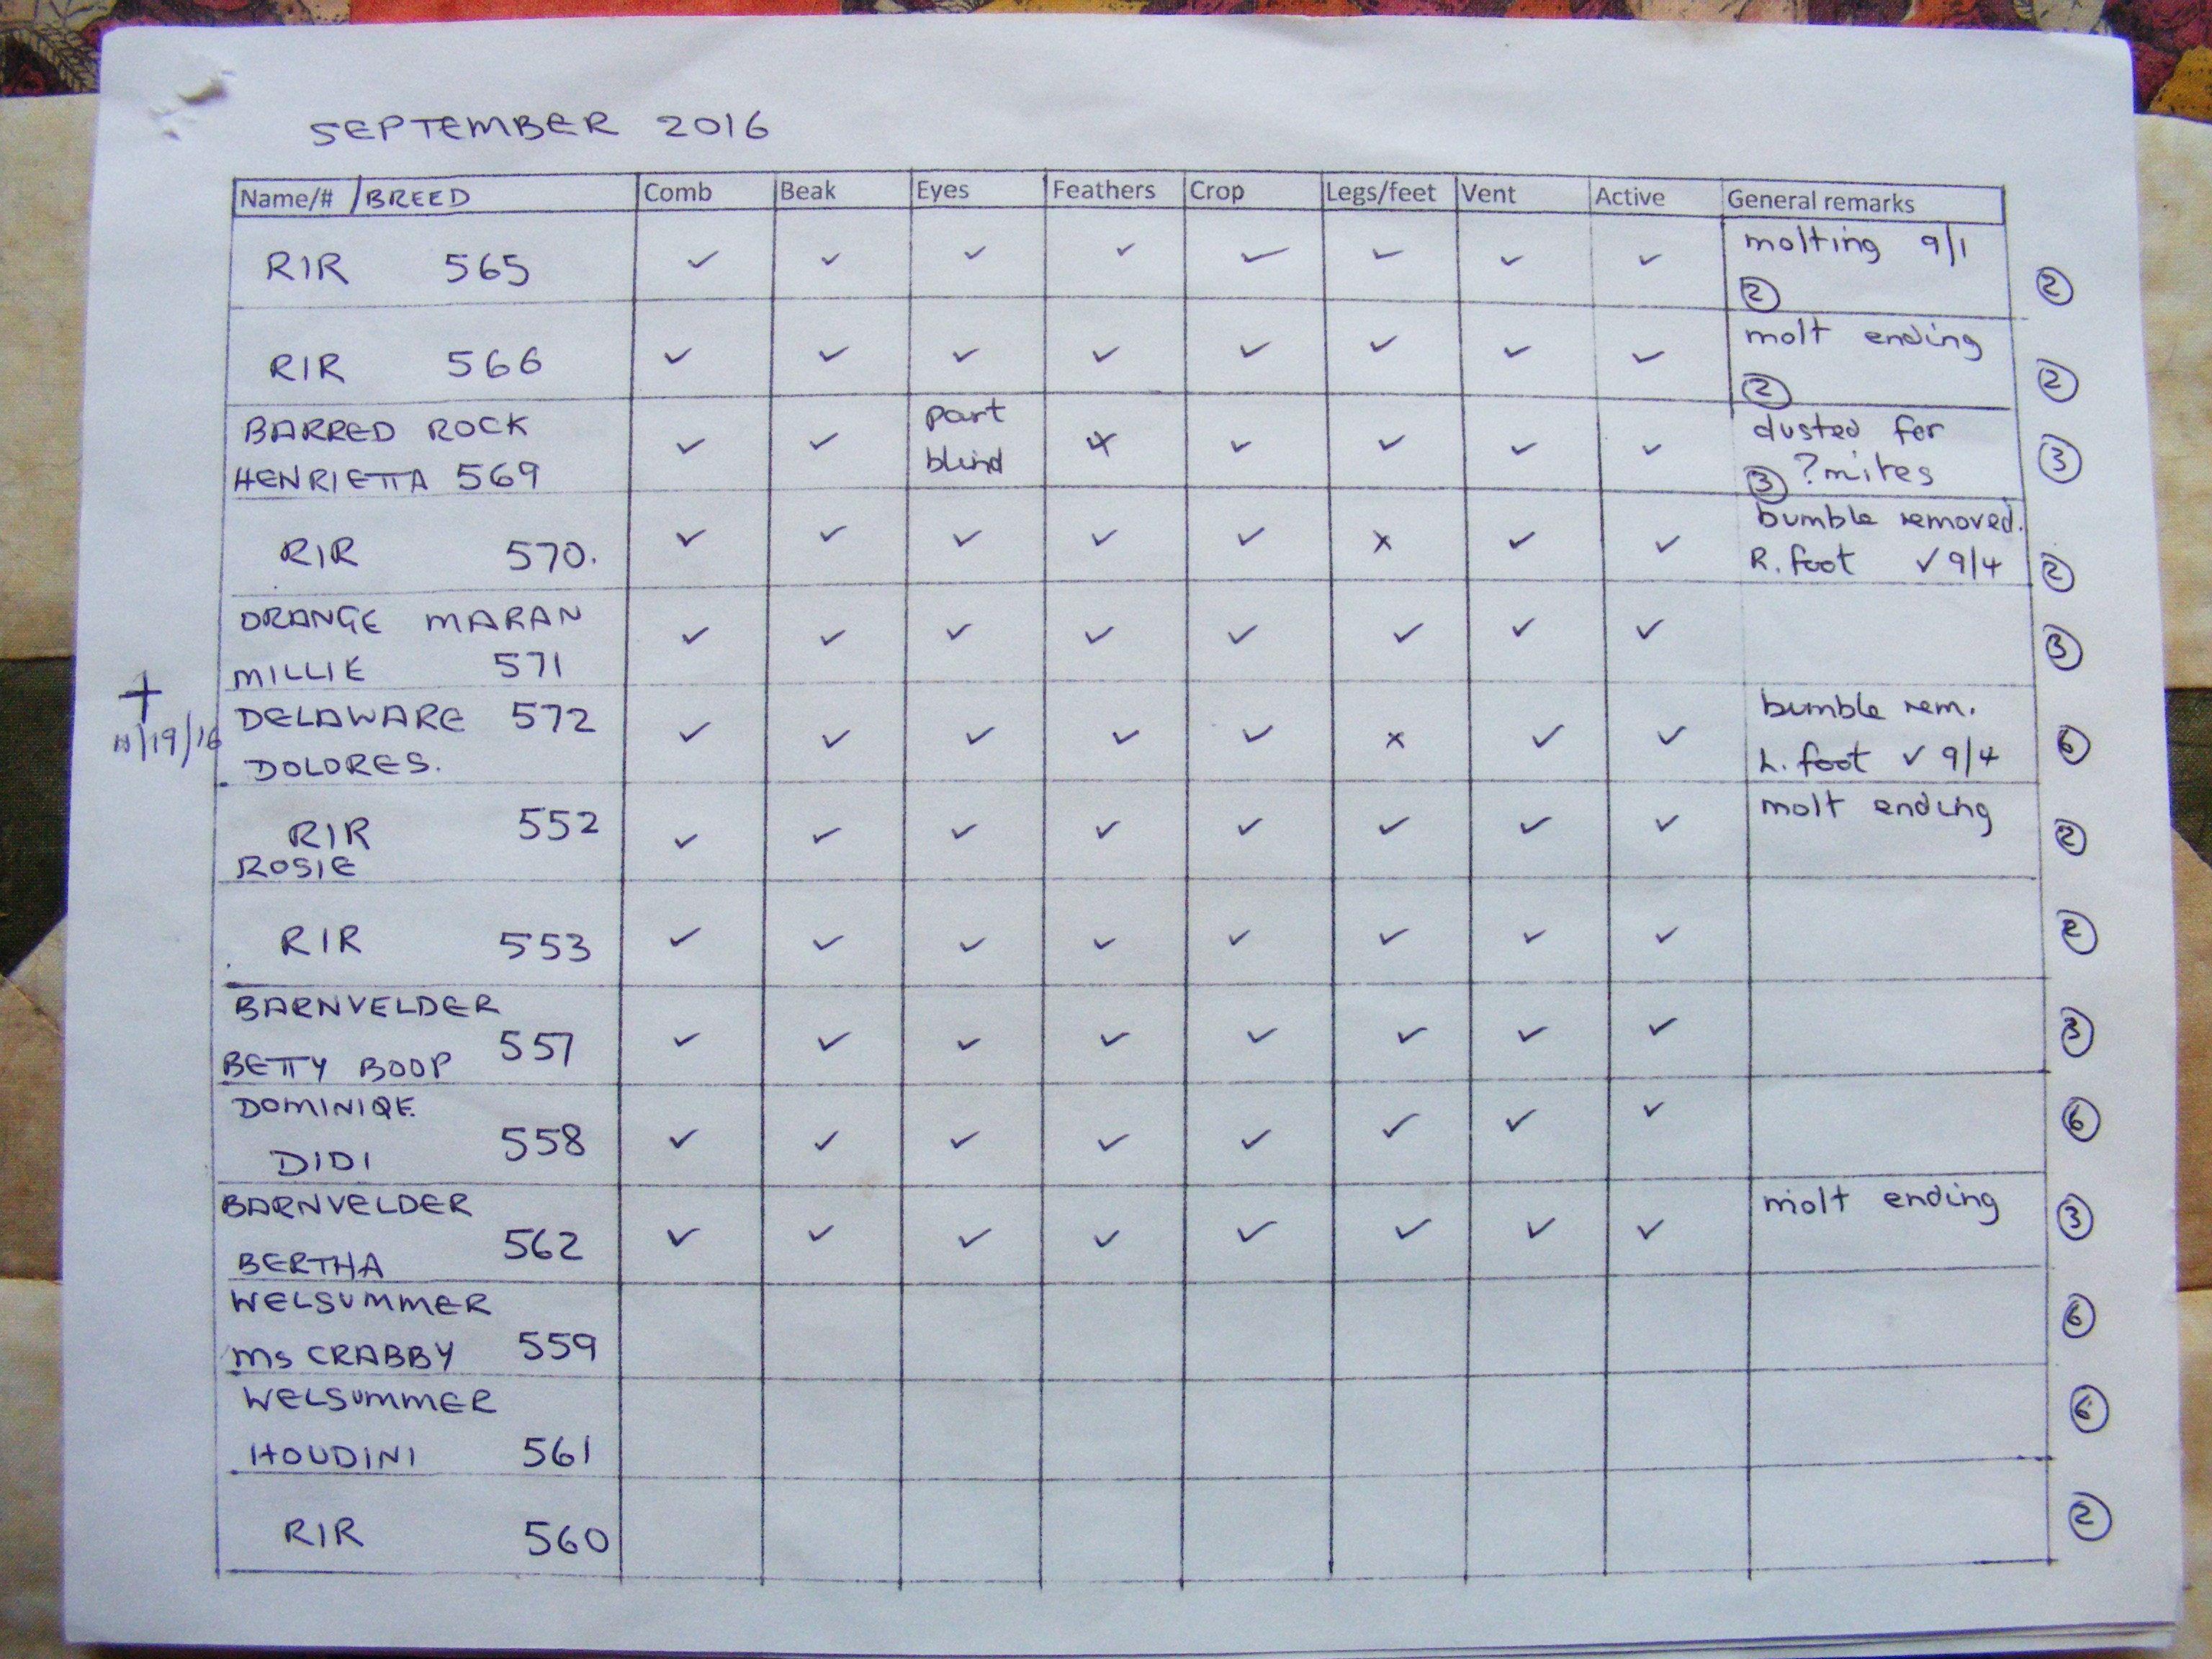 SEPTEMBER 2016
Name/# /BREED Comb Beak Eyes Feathers Crop Legs/feet Vent Active General remarks
RIR 565 ✓ ✓ ✓ ✓ ✓ ✓ ✓ ✓ molting 9/1
② ②
RIR 566 ✓ ✓ ✓ ✓ ✓ ✓ ✓ ✓ molt ending
② ②
BARRED ROCK ✓ ✓ part ✓ ✓ ✓ ✓ dusted for
HENRIETTA 569 blind ③ ?mites ③
RIR 570. ✓ ✓ ✓ ✓ ✓ x ✓ ✓ bumble removed.
R. foot ✓ 9/4 ②
ORANGE MARAN ✓ ✓ ✓ ✓ ✓ ✓ ✓ ✓
MILLIE 571 ③
+ DELAWARE 572 ✓ ✓ ✓ ✓ ✓ x ✓ ✓ bumble rem.
/19/16 DOLORES. L. foot ✓ 9/4 ⑥
RIR 552 ✓ ✓ ✓ ✓ ✓ ✓ ✓ ✓ molt ending
ROSIE ②
RIR 553 ✓ ✓ ✓ ✓ ✓ ✓ ✓ ✓ ②
BARNVELDER
557 ✓ ✓ ✓ ✓ ✓ ✓ ✓ ✓ ③
BETTY BOOP
DOMINIQE.
558 ✓ ✓ ✓ ✓ ✓ ✓ ✓ ✓ ⑥
DIDI
BARNVELDER molt ending
562 ✓ ✓ ✓ ✓ ✓ ✓ ✓ ✓ ③
BERTHA
WELSUMMER
Ms CRABBY 559 ⑥
WELSUMMER
HOUDINI 561 ⑥
RIR 560 ②